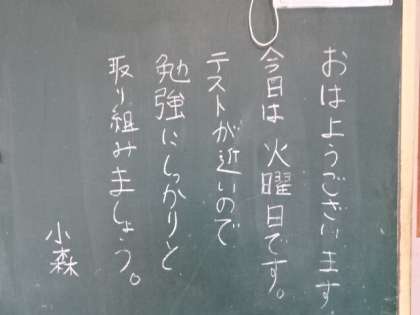 おはようございます
今日は火曜日です。
テストが近いので
勉強にしっかりと
取り組みましょう。
小森